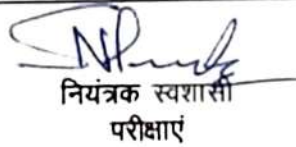 नियंत्रक स्वशासी
परीक्षाएं